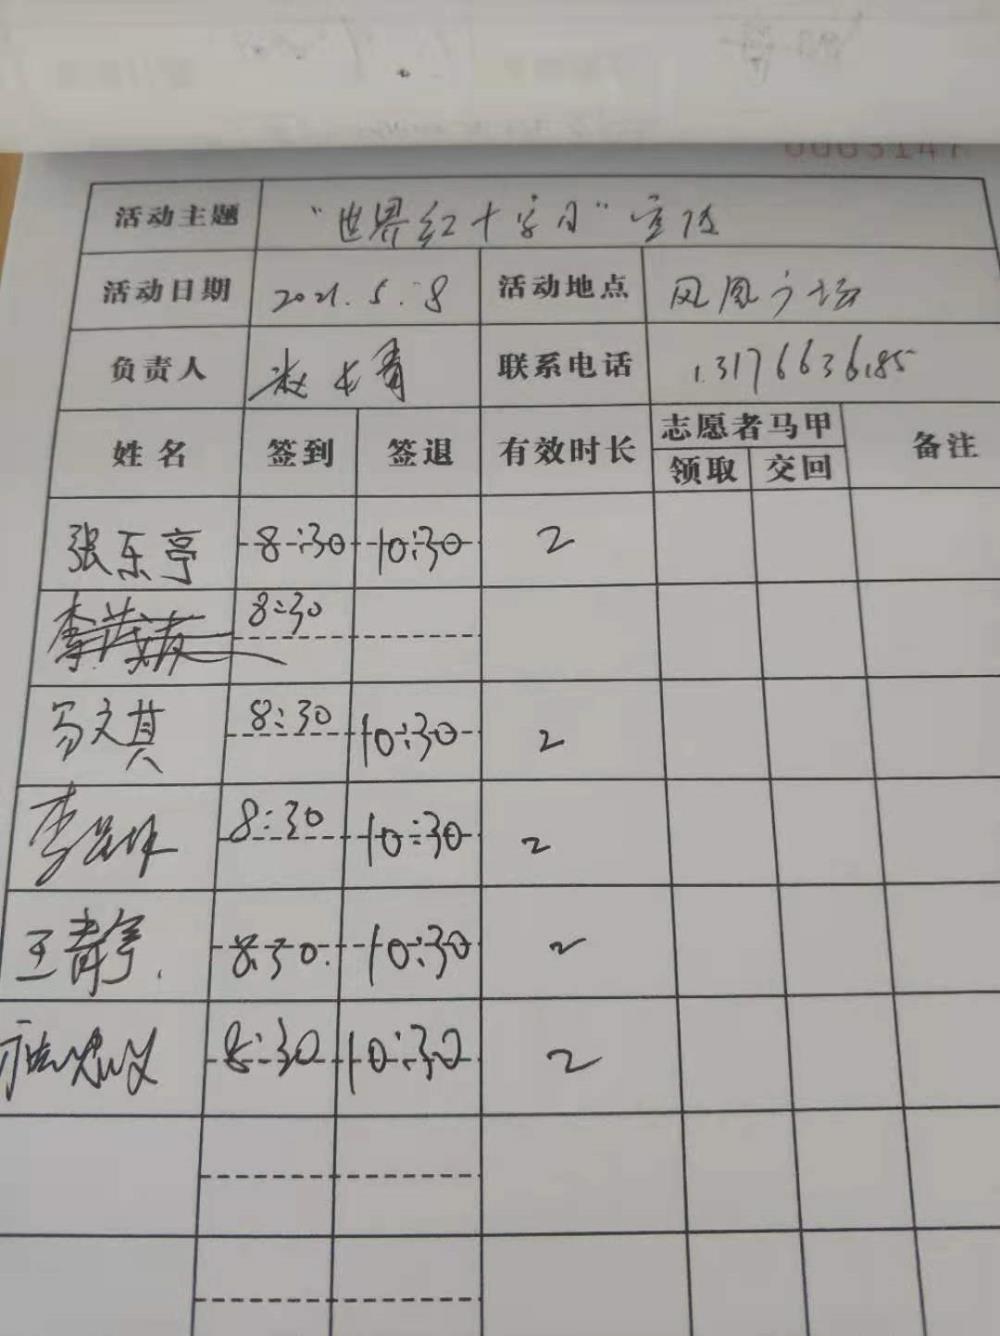 0003147
活动主题 "世界红十字日"宣传
活动日期 2021.5.8 活动地点 凤凰广场
负责人 赵长青 联系电话 13176636185
姓名 签到 签退 有效时长 志愿者马甲 备注
领取 交回
张乐亭 8:30 10:30 2
8:30
易文其 8:30 10:30 2
李 8:30 10:30 2
王静宇 8:30 10:30 2
8:30 10:30 2